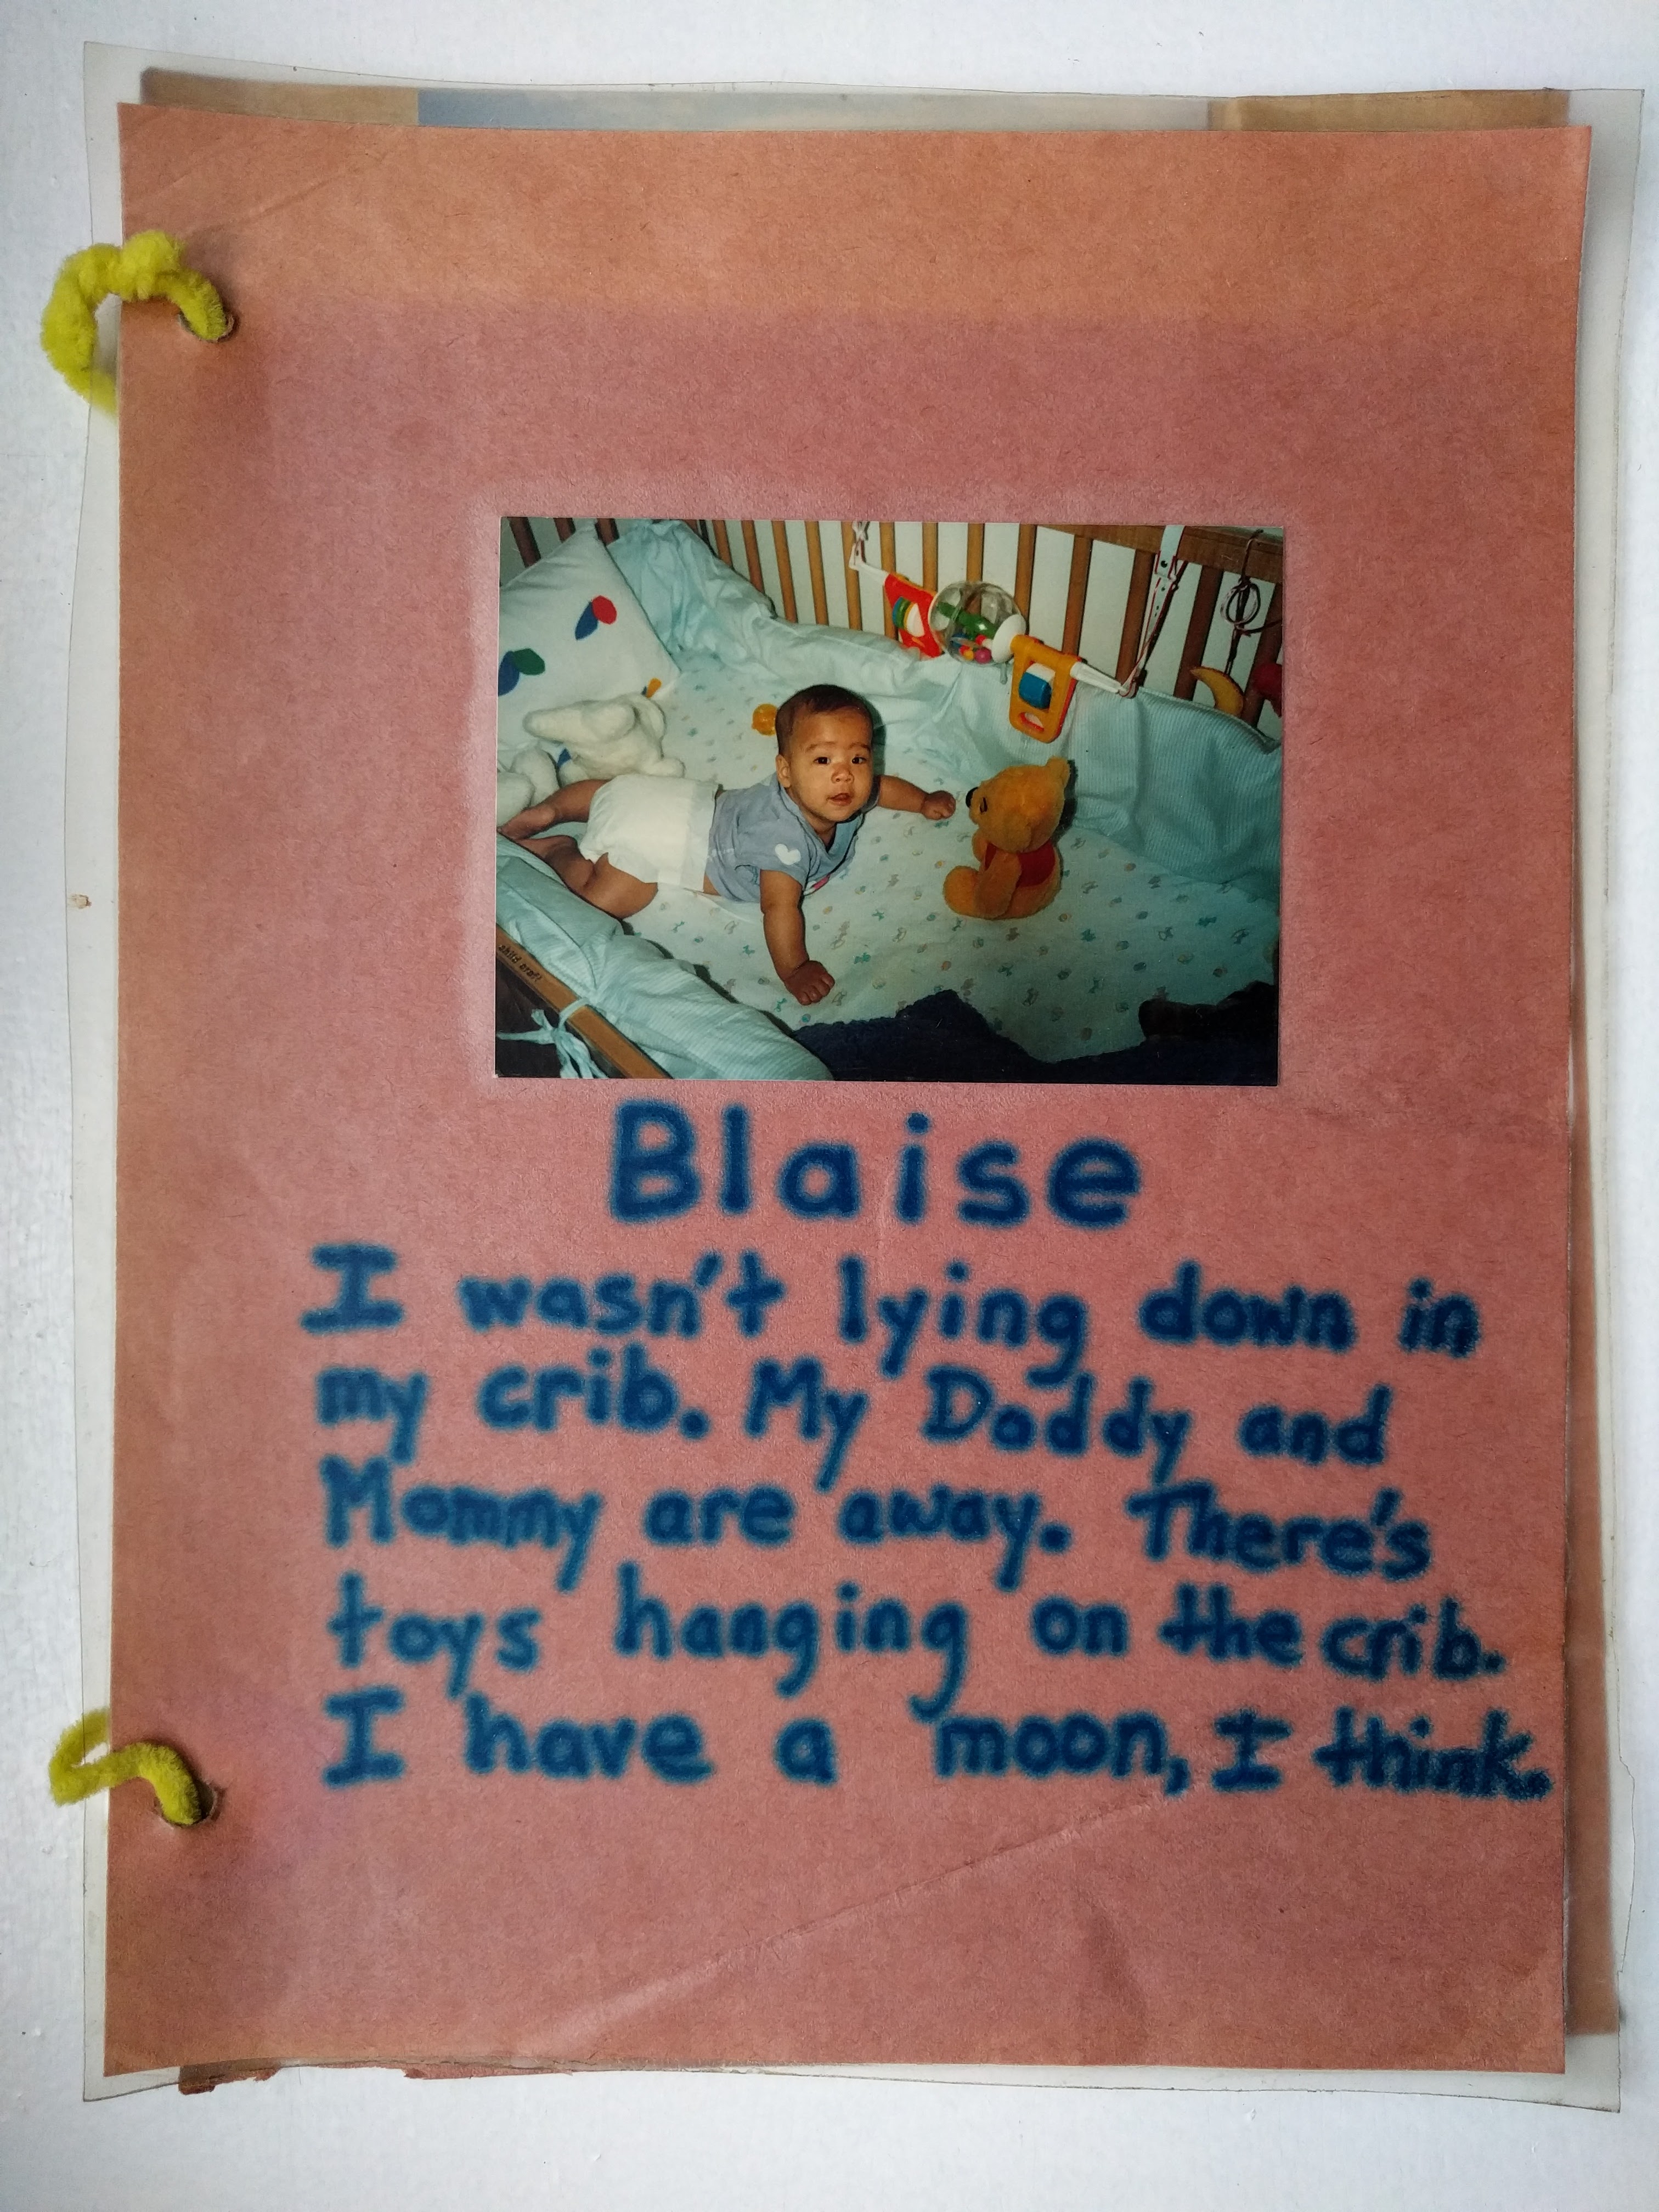 child craft
Blaise
I wasn't lying down in
my crib. My Daddy and
Mommy are away. There's
toys hanging on the crib.
I have a moon, I think.